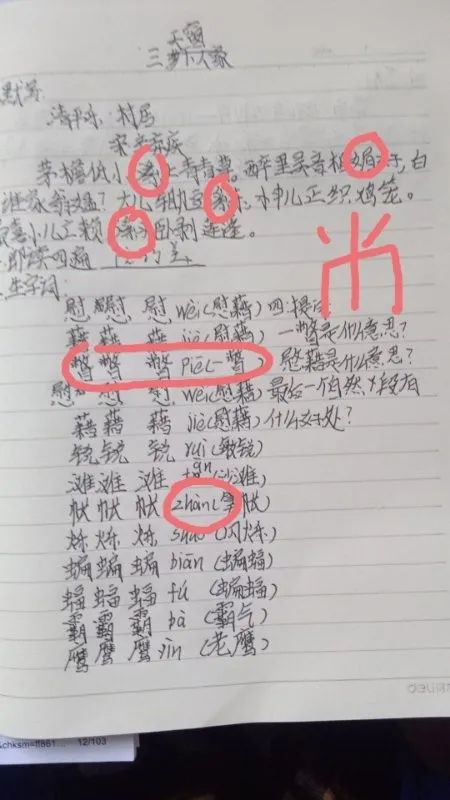 天窗
三 梦卜人家
默写
清平乐 村居
宋 辛弃疾
茅檐低小 溪上青青草。醉里吴音相媚好, 白
谁家翁媪? 大儿锄豆溪东 中儿正织鸡笼。
喜小儿无赖 溪头卧剥莲蓬。
即读四遍
生字词
慰 慰 慰 wèi(慰藉) 四.提问
藉 藉 藉 jiè(慰藉) 一瞥是什么意思?
瞥 瞥 瞥 piē(一瞥 慰藉是什么意思?
慰 慰 慰 wèi(慰藉) 最后一个自然段有
藉 藉 藉 jiè(慰藉) 什么好处?
锐 锐 锐 ruì(敏锐)
滩 滩 滩 tān(沙滩
状 状 状 zhàn(掌状)
烁 烁 烁 shuò(闪烁)
蝙 蝙 蝙 biān(蝙蝠)
蝠 蝠 蝠 fú(蝙蝠)
霸 霸 霸 bà(霸气)
鹰 鹰 鹰 yīn(老鹰)
deli
&chksm=ff861... 12/103